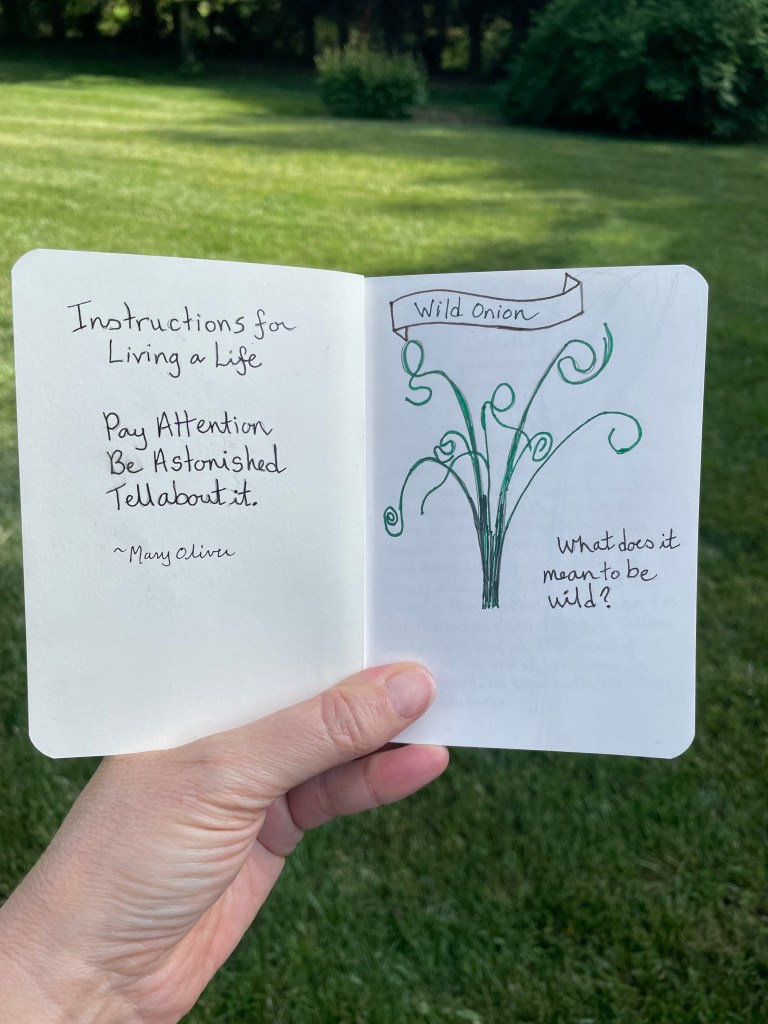 Instructions for
Living a Life
Pay Attention
Be Astonished
Tell about it.
~Mary Oliver
Wild Onion
What does it
mean to be
wild?